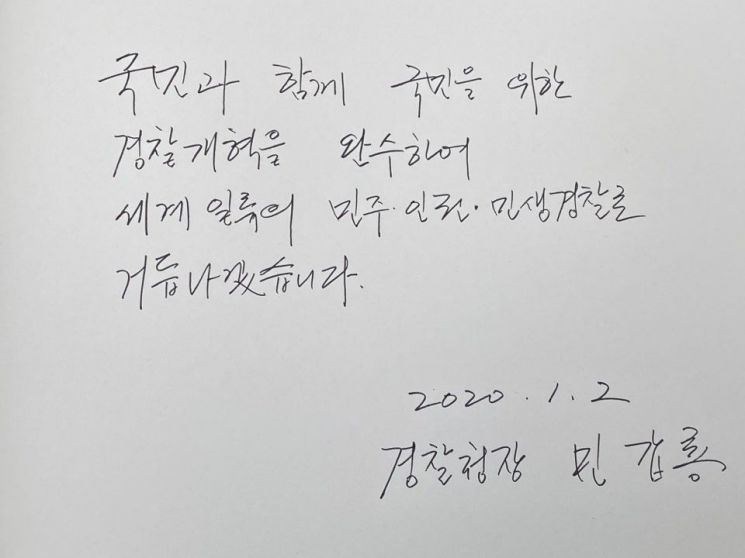 국민과 함께 국민을 위한
경찰개혁을 완수하여
세계 일류의 민주·인권·민생경찰로
거듭나겠습니다.
2020. 1. 2
경찰청장 민갑룡